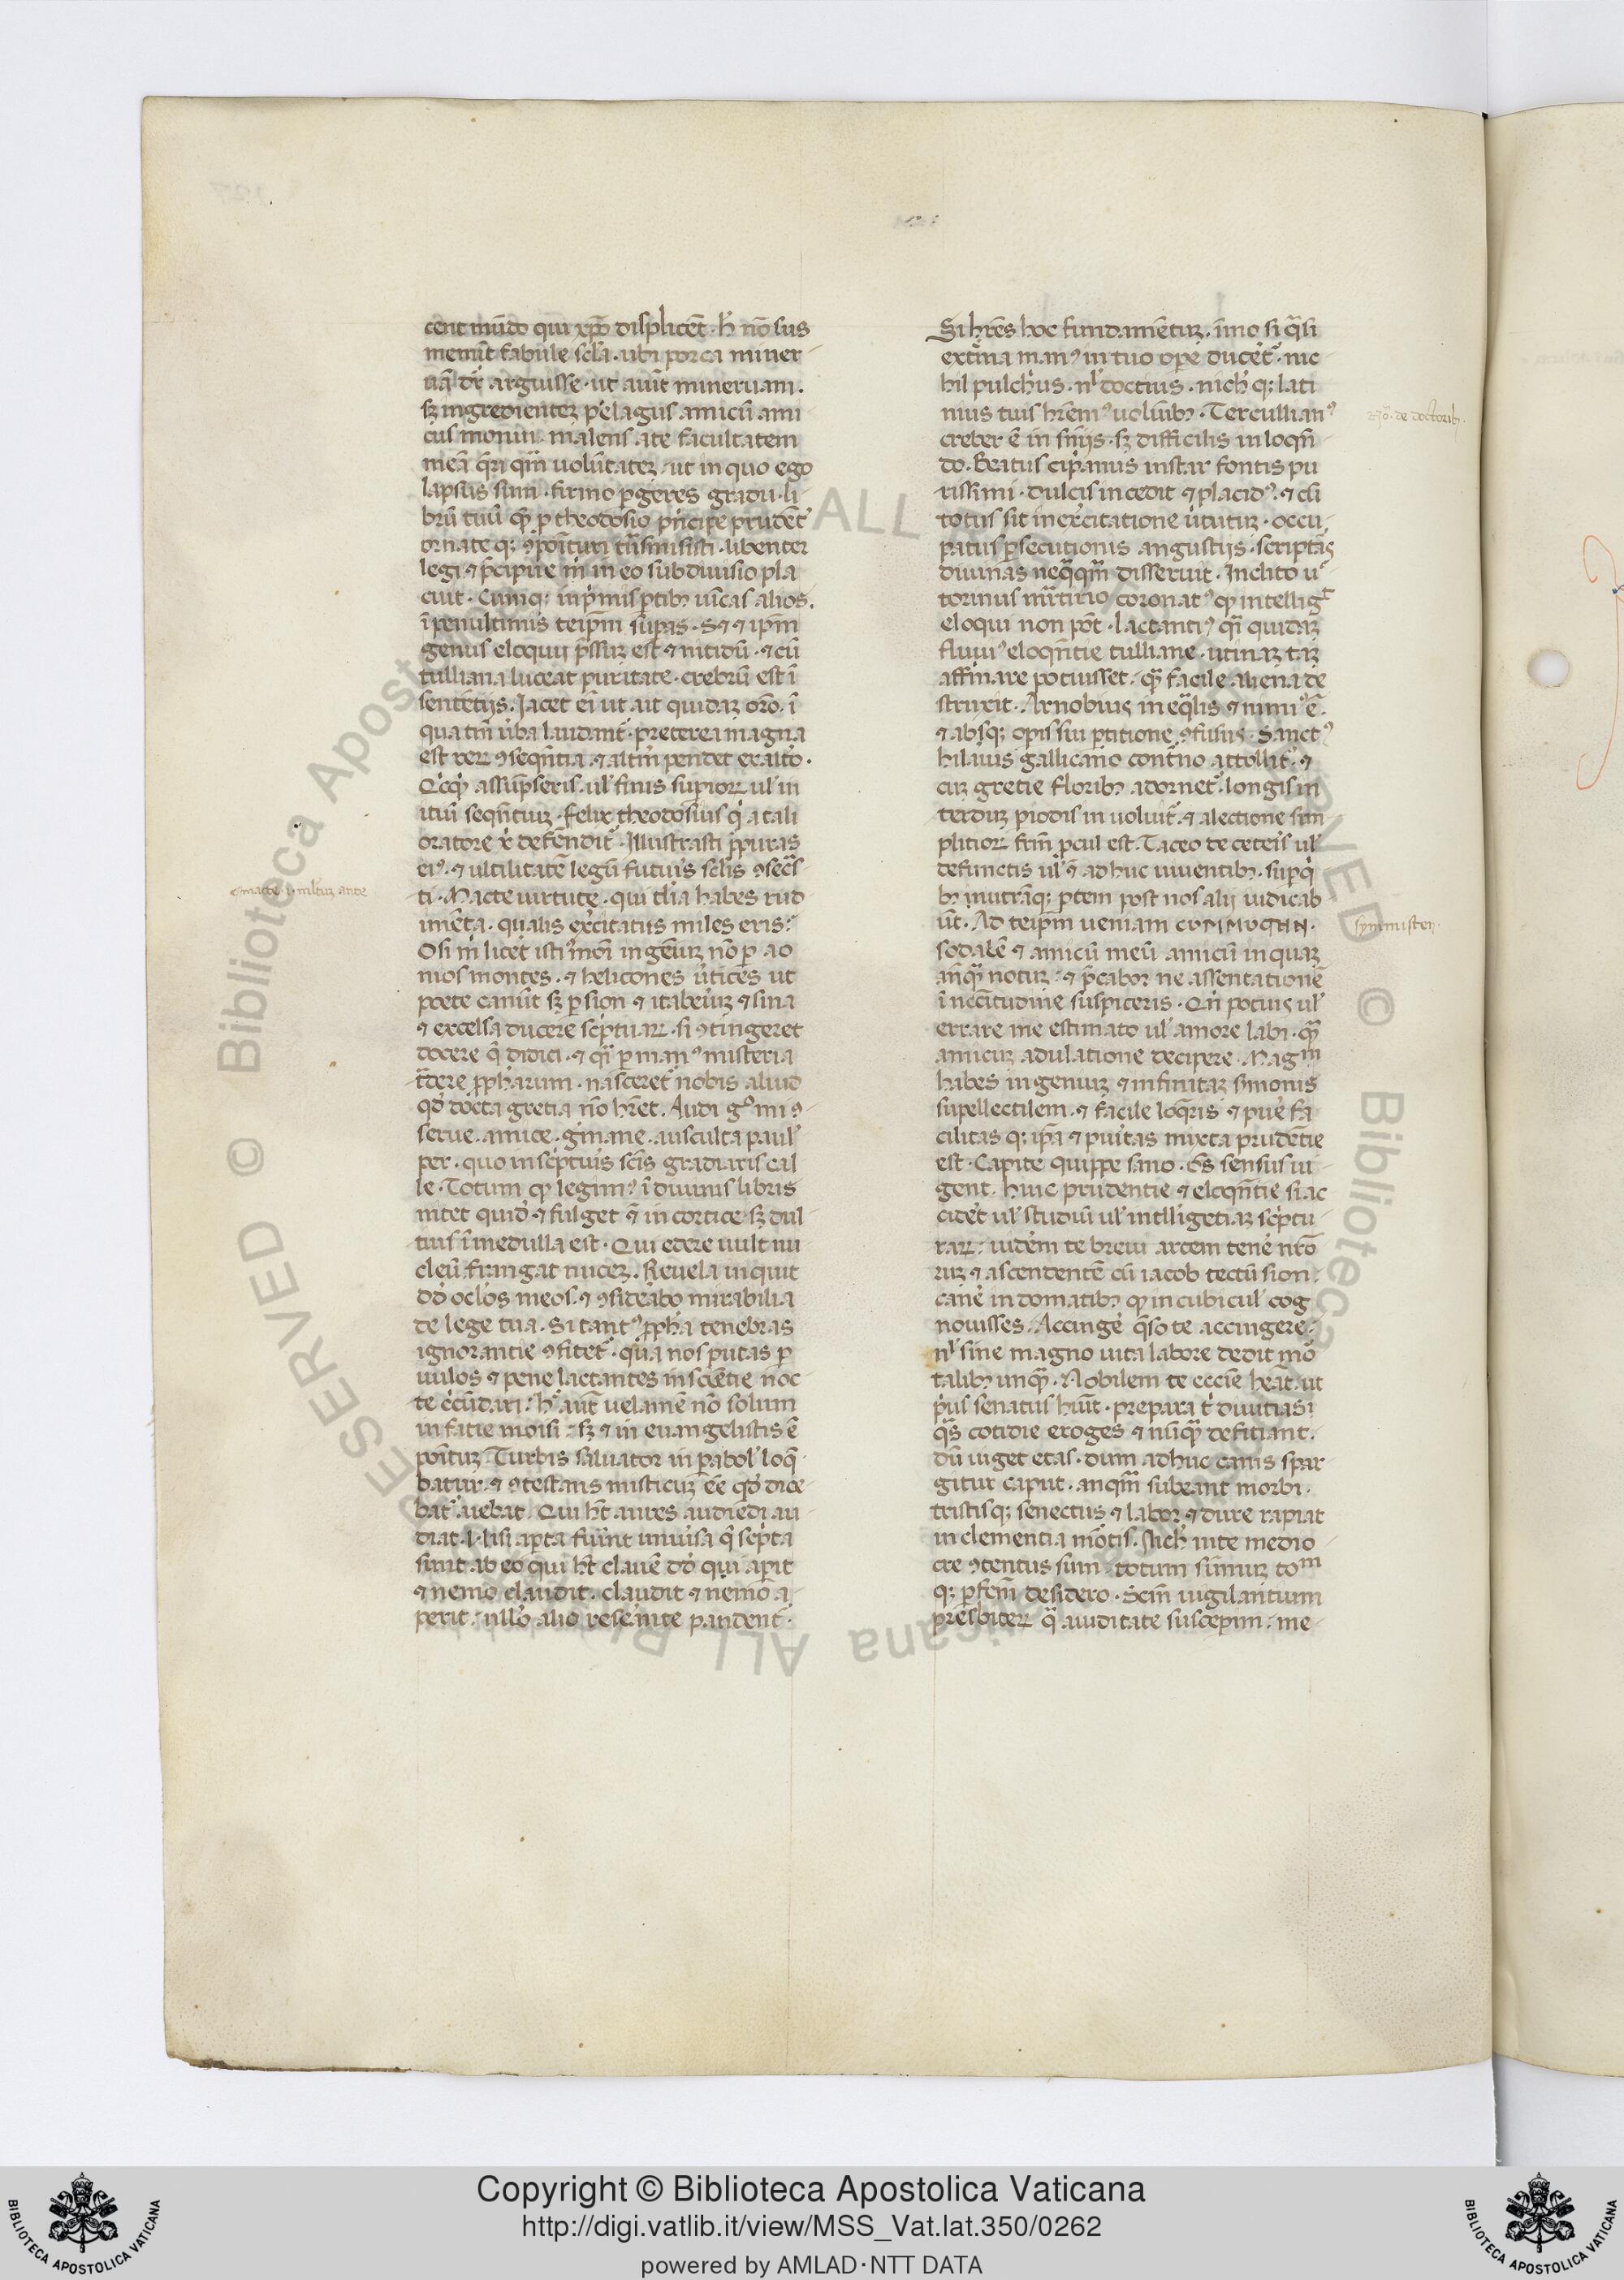 cent mūdo qui xp̄o displicēt. h̄ nō sus
menūt fabule sc̄la. ubi porca miner
uā dr̄ arguisse. ut aiūt mineruam.
sꝫ ingredienteꝫ pelagus amicū ami
cus monui. malens a te facultatem
meā q̄ri qm̄ uolūtateꝫ ut in quo ego
lapsus sum. firmo ꝑgeres gradu. li
brū tuū ꝙ ꝓ theodosio pͥncipe prudēt̉
ornate qꝫ ꝯpoītum tn̄smisisti. libenter
legi ⁊ p̄cipue m̄ in eo subdiuisio pla
cuit. Cumqꝫ in pͥmis ꝑtibꝰ uīcas alios.
ī penultimis teip̄m suꝑas. Sꝫ ⁊ ip̄m
genus eloquii p̄ssuꝫ est ⁊ nitidū. ⁊ cū
tulliana luceat puritate. crebrū est ī
sentētiis. Jacet ei̅ ut ait quidaꝫ or̄o. ī
qua tm̄ ūba laudant̉. preterea magna
est reꝝ ꝯseq̄ntia. ⁊ altm̄ pendet ex alto.
Qͥcqͥd assūpseris. ul̉ finis supioꝝ ul̉ in
itiū seqn̄tiuꝫ. felix theodosius qͥ a tali
oratore xͥ defendit̉. Illustrasti ꝓpuras
eiꝰ. ⁊ utilitatē legū futuris sc̄lis ꝯsecͣs
ti. Macte uirtute. qui t̄lia habes rud
imēta. qualis exͨitatus miles eris?
O si m̄ liceͭ istiꝰmōi ingeniuꝫ nō ꝑ ao
nios montes. ⁊ helicones ūtices ut
poete canūt sꝫ ꝑ sion ⁊ itabeiuꝫ ⁊ sina
⁊ excelsa ducere sc̄ptuaꝝ. si ꝯtingeret
docere q̄ didici. ⁊ qͣi ꝑ manꝰ misteria
tͣdere ꝓpharum. nasceret̉ nobis aliud
qd̄ docta gretia nō hr̄et. Audi gͦ mi ꝯ
serue. amice. gͥmane. ausculta paul̉
per. quo in sc̄pturis sc̄is gradiaris cal
le. Totum ꝙ legimꝰ ī diuinis libris
nitet quid̄ ⁊ fulget ⁊̄ in cortice sꝫ dul
tius ī medulla est. Qui edere uult nu
cleū frangat nuceꝫ. Reuela inquit
dd̄ oc̄los meos. ⁊ ꝯsiderabo mirabilia
de lege tua. Si tantꝰ ꝓpha tenebras
ignorantie ꝯfitet̉. qua nos putas ꝑ
uulos ⁊ pene lactantes inscientie noc
te cͥcūdari? h̄ aūt uelamē nō solum
in facie moisi. sꝫ ⁊ in euangelistis ē
poītuꝫ. Turbis saluator in ꝑabol̉ loq̄
batur. ⁊ ꝯtestans misticuꝫ eē qd̄ dice
bat̉ aiebat. Qui hꝫ aures audiēdi au
diat. Nisi aꝑta fuint uniuisa q̄ sc̄pta
sunt ab eo qui hꝫ clauē dd̄ qui aꝑit
⁊ nemo claudit. claudit ⁊ nemo a
perit. nullo alio reserante pandent̉.
Si hr̄es hoc fundamētuꝫ. īmo si qͣsi
extͥma manꝰ in tuo oꝑe ducet̉. nic
hil pulchͥus. nl̉ doctius. nichͥ qꝫ lati
nius tuis hr̄emꝰ uolūbꝰ. Tertullianꝰ
creber ē in sn̄iis. sꝫ difficilis in loqn̄
do. Beatus cipͥanus instar fontis pu
rissimi. dulcis incedit ⁊ placidꝰ. ⁊ cū
totus sit in exͨitatione ūtutuꝫ. occu
patus ꝑsecutionis angustiis. scriptͣs
diuinas neqͣqͣm disseruit. Inclito u̅
torinus martirio coronatꝰ ꝙ intelligͭ
eloqui non pōt. lactantiꝰ qͣi quidaꝫ
fluuiꝰ eloqn̄tie tulliane. utinaꝫ taꝫ
affirmare potuisset. ꝙ facile aliena de
struxit. Arnobius ineqͣlis ⁊ nimiꝰ ē.
⁊ absqꝫ opis sui ꝑtitione ꝯfusus. Sanctꝰ
hilarius gallicano cont̉no attollit̉. ⁊
cuꝫ gretie floribꝰ adornet̉. longis in
terduꝫ piodis inuoluit̉. ⁊ a lectione sim
plitioꝝ frm̄ ꝓcul est. Taceo de ceteris ul̉
defunctis ul̉ ⁊̄ adhuc uiuentibꝰ. suꝑ qͥ
bꝰ in utrāqꝫ ꝑtem post nos alii iudicab
ūt. Ad teip̄m ueniam CYMMYCTHN.
sodalē ⁊ amicū meū. amicū inquaꝫ
an̄qͣ notuꝫ. ⁊ p̄cabor ne assentationē
ī neccitudine suspiceris. Qn̄ potius ul̉
errare me estimato ul̉ amore labi. qͣm
amicuꝫ adulatione decipere. Magᵐ
habes ingeniuꝫ ⁊ infinitaꝫ sͬmonis
supellectilem. ⁊ facile loqͬis ⁊ pure fa
cilitas qꝫ ip̄a ⁊ puritas mixta prudētie
est. Capite quippe sano. oēs sensus ui
gent. huic prudentie ⁊ eloqn̄tie si ac
cidet ul̉ studiū ul̉ intlligetiaꝫ sc̄ptu
raꝝ. uidēm te breui arcem tene nr̄o
ruꝫ ⁊ ascendentē cū iacob tectū sion.
canē in domatibꝰ ꝙ in cubicul̉ cog
nouisses. Accingē q̄so te accingere.
nl̉ sine magno uita labore dedit mō
talibꝰ unqͣ. Nobilem te eccīe heāt. ut
pͥus senatus huīt. prepara tͥ diuitias
qͣs cotidie eroges ⁊ nūqͣ deficiant.
dū uiget etas. dum adhuc canis spar
gitur caput. anqͣm subeant morbi.
tristisqꝫ senectus ⁊ labor ⁊ dure rapiat
inclementia mōtis. Nichͥ in te medio
cre ꝯtentus sum. totum sūmuꝫ toᵐ
qꝫ ꝑfcm̄ desidero. Scm̄ uigilantium
presbiteꝝ qͣ auiditate susceperim. me